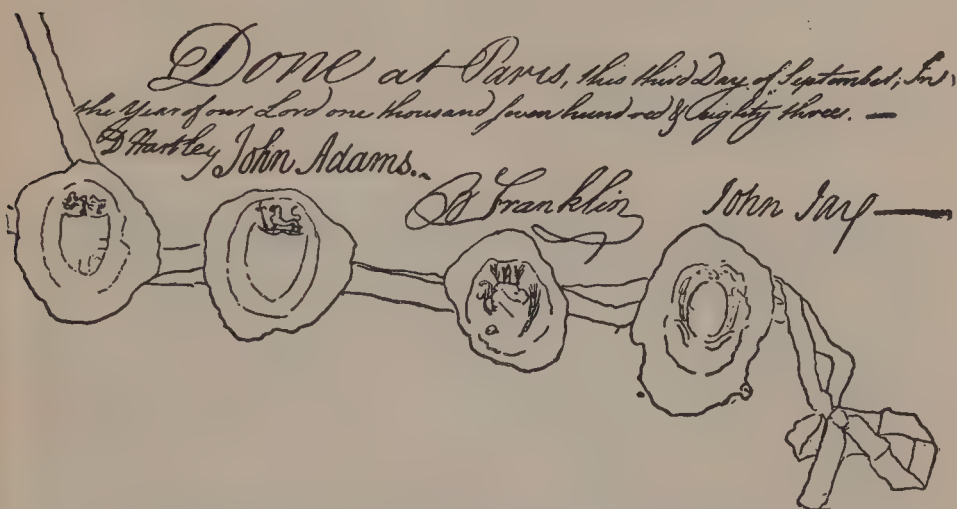 Done at Paris, this third Day of September, In
the Year of our Lord one thousand seven hundred & eighty three. —
D Hartley John Adams..
B Franklin John Jay —